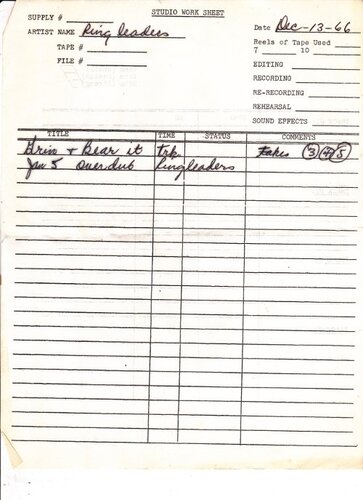 STUDIO WORK SHEET
SUPPLY #
ARTIST NAME Ring leaders
Date Dec-13-66
TAPE #
Reels of Tape Used
7 10
FILE #
EDITING
RECORDING
RE-RECORDING
REHEARSAL
SOUND EFFECTS
TITLE TIME STATUS COMMENTS
Grin + Bear it trk. takes 3 4 5
Jan 5 overdub Ringleaders